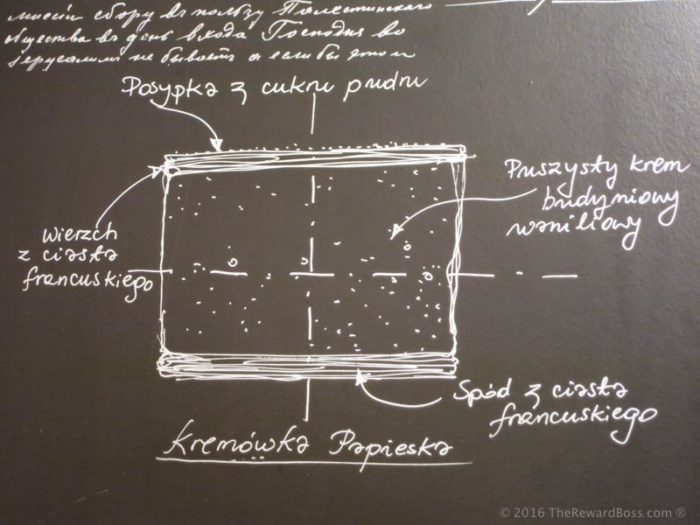 сбору въ пользу Палестинскаго
общества въ день входа Господня во
не бываетъ а если бы
Posypka z cukru pudru
Puszysty krem
budyniowy
waniliowy
Wierzch
z ciasta
francuskiego
Spód z ciasta
francuskiego
Kremówka Papieska
© 2016 TheRewardBoss.com ®